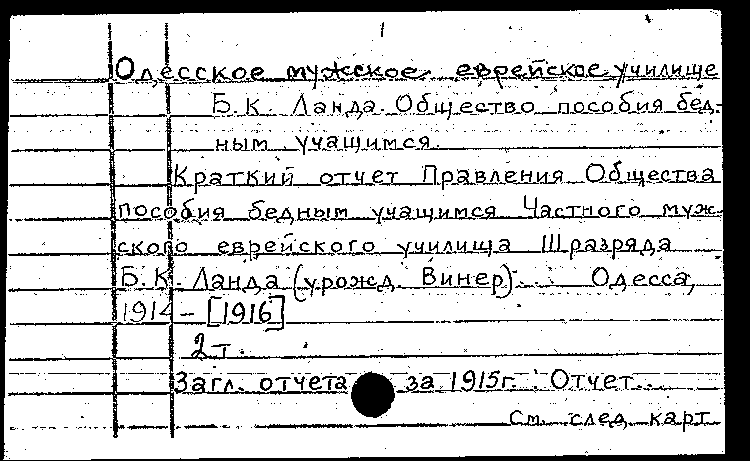 Одесское мужское еврейское училище
Б.К. Ланда. Общество пособия бед-
ным учащимся.
Краткий отчет Правления Общества
пособия бедным учащимся Частного муж-
ского еврейского училища III разряда
Б.К. Ланда (урожд. Винер)... Одесса,
1914 - [1916]
2 т.
Загл. отчета за 1915г.: Отчет...
См. след. карт.